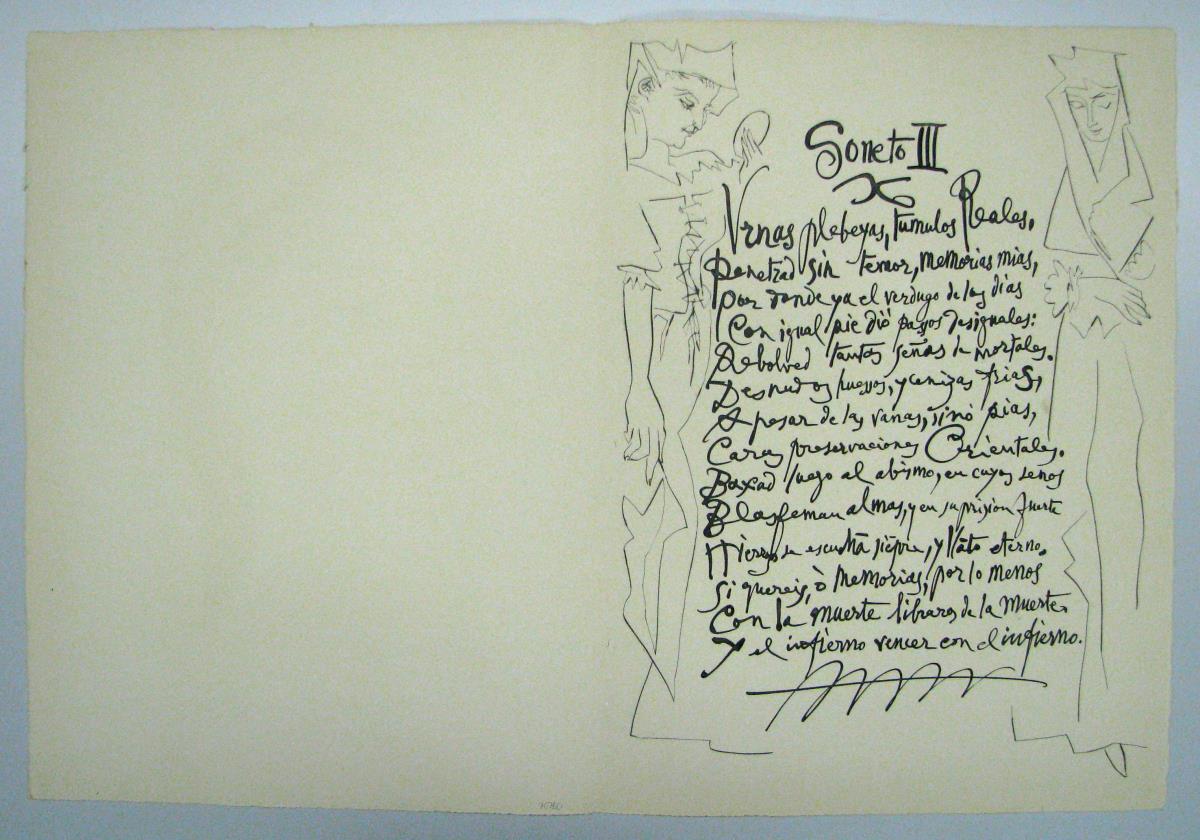 Soneto III
X
Vrnas plebeyas, tumulos Reales,
Penetrad sin temor, memorias mias,
por donde ya el verdugo de los dias
Con igual pie dió passos desiguales:
Rebolved tantas señas de mortales.
Desnudos huessos, y cenizas frias,
A pesar de las vanas, sinó pias,
Caras preservaciones Orientales.
Baxad luego al abismo, en cuyos senos
Blasfeman almas, y en su prision fuerte
Hierros se escuchã siẽpre, y llãto eterno.
Si quereis, ò memorias, por lo menos
Con la muerte libraros de la muerte.
Y el infierno vencer con el infierno.